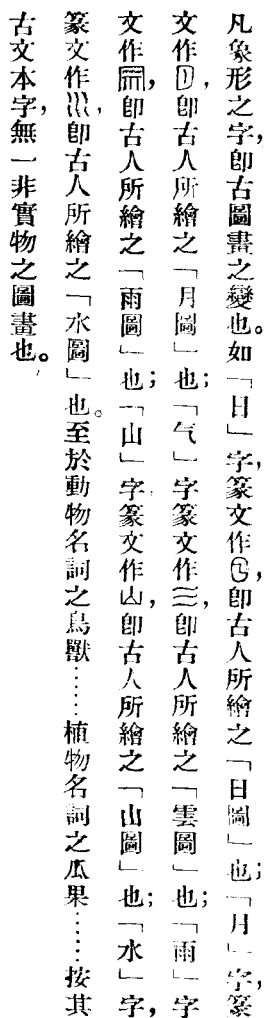 凡象形之字，卽古圖畫之變也。如「日」字，篆文作，卽古人所繪之「日圖」也；「月」字，篆
文作，卽古人所繪之「月圖」也；「气」字篆文作，卽古人所繪之「雲圖」也；「雨」字
文作，卽古人所繪之「雨圖」也；「山」字篆文作，卽古人所繪之「山圖」也；「水」字，
篆文作，卽古人所繪之「水圖」也。至於動物名詞之鳥獸……植物名詞之瓜果……按其
古文本字，無一非實物之圖畫也。